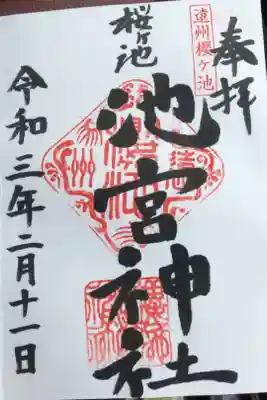 奉拝
遠州櫻ヶ池
桜ヶ池
池宮神社
令和三年二月十一日